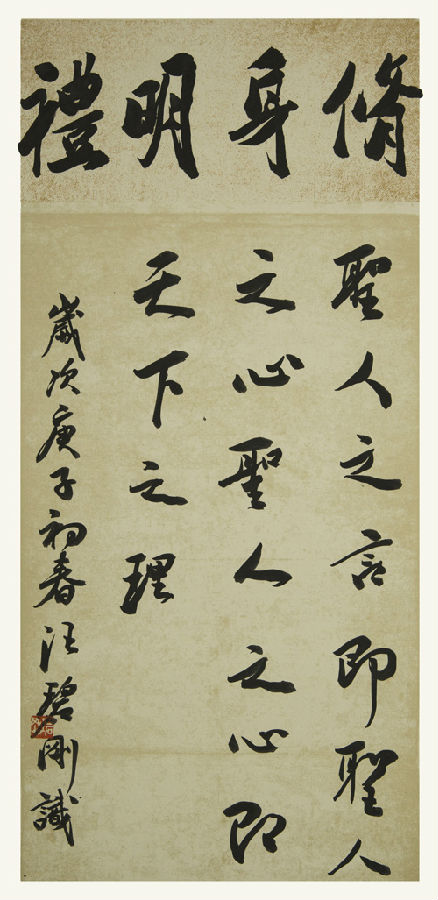 脩身明禮
聖人之言即聖人
之心聖人之心即
天下之理
歲次庚子初春汪碧剛識